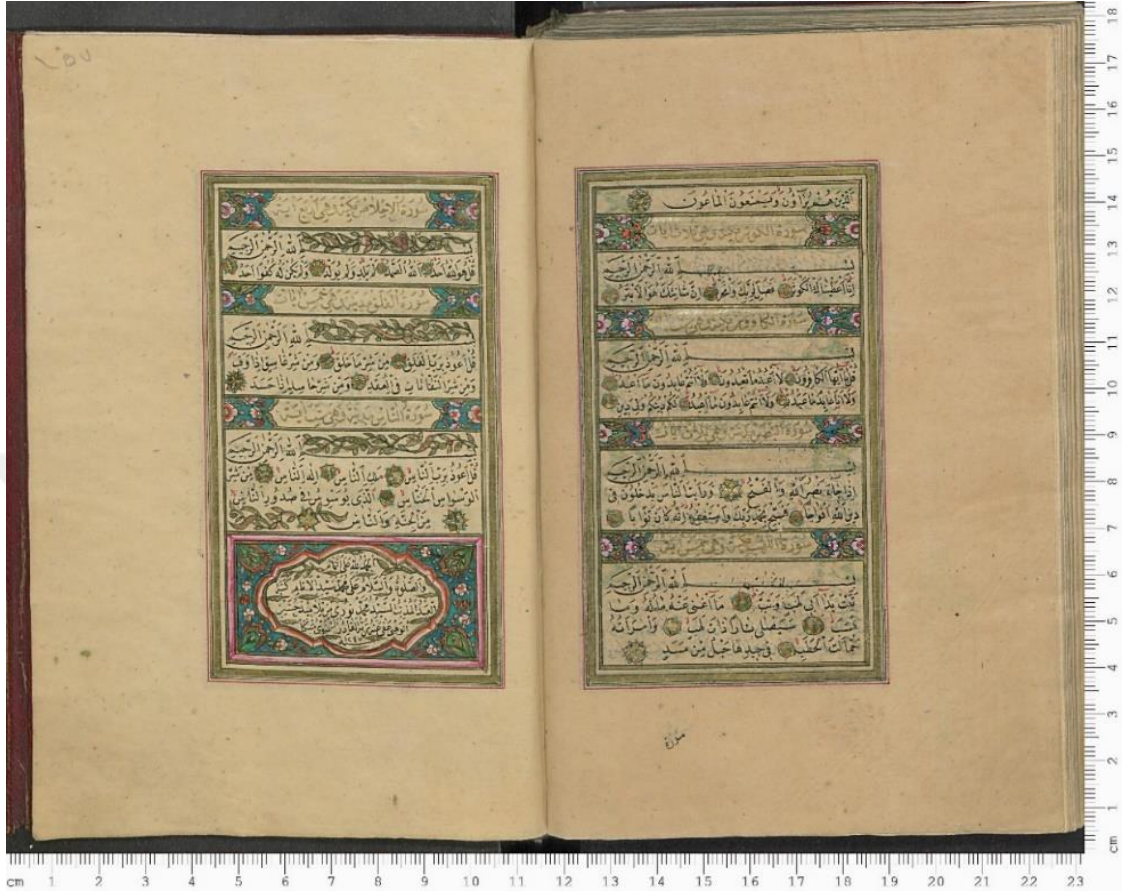 الَّذِينَ هُمْ يُرَاؤُنَ وَيَمْنَعُونَ الْمَاعُونَ
سورة الكوثر مكية وهي ثلاث ايات
بسم الله الرحمن الرحيم
إِنَّا أَعْطَيْنَاكَ الْكَوْثَرَ فَصَلِّ لِرَبِّكَ وَانْحَرْ إِنَّ شَانِئَكَ هُوَ الْأَبْتَرُ
سورة الكافرون مكية وهي ست
بسم الله الرحمن الرحيم
قُلْ يَا أَيُّهَا الْكَافِرُونَ لَا أَعْبُدُ مَا تَعْبُدُونَ وَلَا أَنْتُمْ عَابِدُونَ مَا أَعْبُدُ
وَلَا أَنَا عَابِدٌ مَا عَبَدْتُمْ وَلَا أَنْتُمْ عَابِدُونَ مَا أَعْبُدُ لَكُمْ دِينُكُمْ وَلِيَ دِينِ
سورة النصر وهي ثلاث ايات
بسم الله الرحمن الرحيم
إِذَا جَاءَ نَصْرُ اللهِ وَالْفَتْحُ وَرَأَيْتَ النَّاسَ يَدْخُلُونَ فِي
دِينِ اللهِ أَفْوَاجًا فَسَبِّحْ بِحَمْدِ رَبِّكَ وَاسْتَغْفِرْهُ إِنَّهُ كَانَ تَوَّابًا
سورة وهي خمس ايات
بسم الله الرحمن الرحيم
تَبَّتْ يَدَا أَبِي لَهَبٍ وَتَبَّ مَا أَغْنَى عَنْهُ مَالُهُ وَمَا
كَسَبَ سَيَصْلَى نَارًا ذَاتَ لَهَبٍ وَامْرَأَتُهُ
حَمَّالَةَ الْحَطَبِ فِي جِيدِهَا حَبْلٌ مِنْ مَسَدٍ
سورة
سورة الاخلاص مكية وهي اربع ايات
بسم الله الرحمن الرحيم
قُلْ هُوَ اللهُ أَحَدٌ اللهُ الصَّمَدُ لَمْ يَلِدْ وَلَمْ يُولَدْ وَلَمْ يَكُنْ لَهُ كُفُوًا أَحَدٌ
سورة الفلق وهي خمس ايات
بسم الله الرحمن الرحيم
قُلْ أَعُوذُ بِرَبِّ الْفَلَقِ مِنْ شَرِّ مَا خَلَقَ وَمِنْ شَرِّ غَاسِقٍ إِذَا وَقَبَ
وَمِنْ شَرِّ النَّفَّاثَاتِ فِي الْعُقَدِ وَمِنْ شَرِّ حَاسِدٍ إِذَا حَسَدَ
سورة الناس وهي ست ايات
بسم الله الرحمن الرحيم
قُلْ أَعُوذُ بِرَبِّ النَّاسِ مَلِكِ النَّاسِ إِلَهِ النَّاسِ مِنْ شَرِّ
الْوَسْوَاسِ الْخَنَّاسِ الَّذِي يُوَسْوِسُ فِي صُدُورِ النَّاسِ
مِنَ الْجِنَّةِ وَالنَّاسِ
الحمد لله
والصلوة والسلام على محمد سيد
السيد محمد نوري